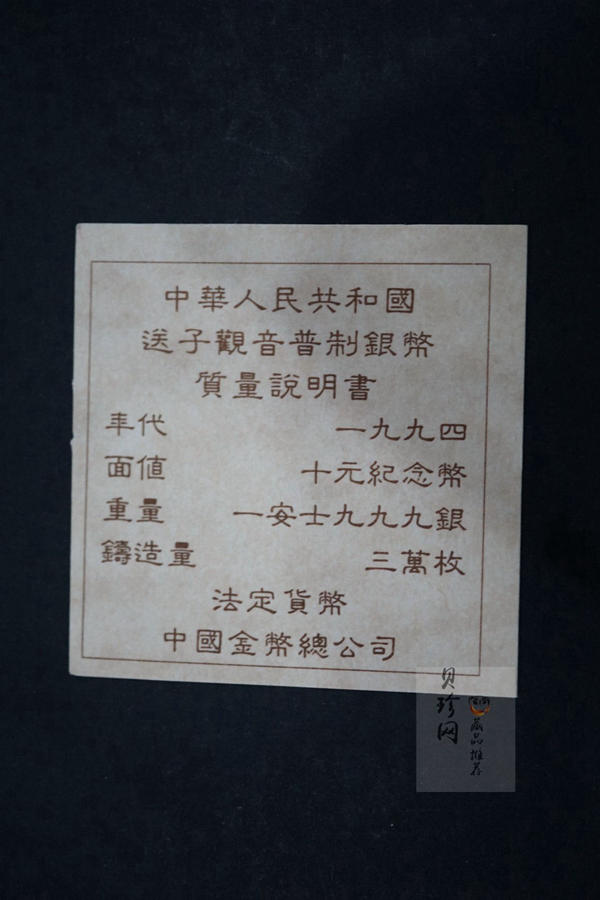 中華人民共和國
送子觀音普制銀幣
質量說明書
年代 一九九四
面值 十元紀念幣
重量 一安士九九九銀
鑄造量 三萬枚
法定貨幣
中國金幣總公司
贝珍网
藏品推荐